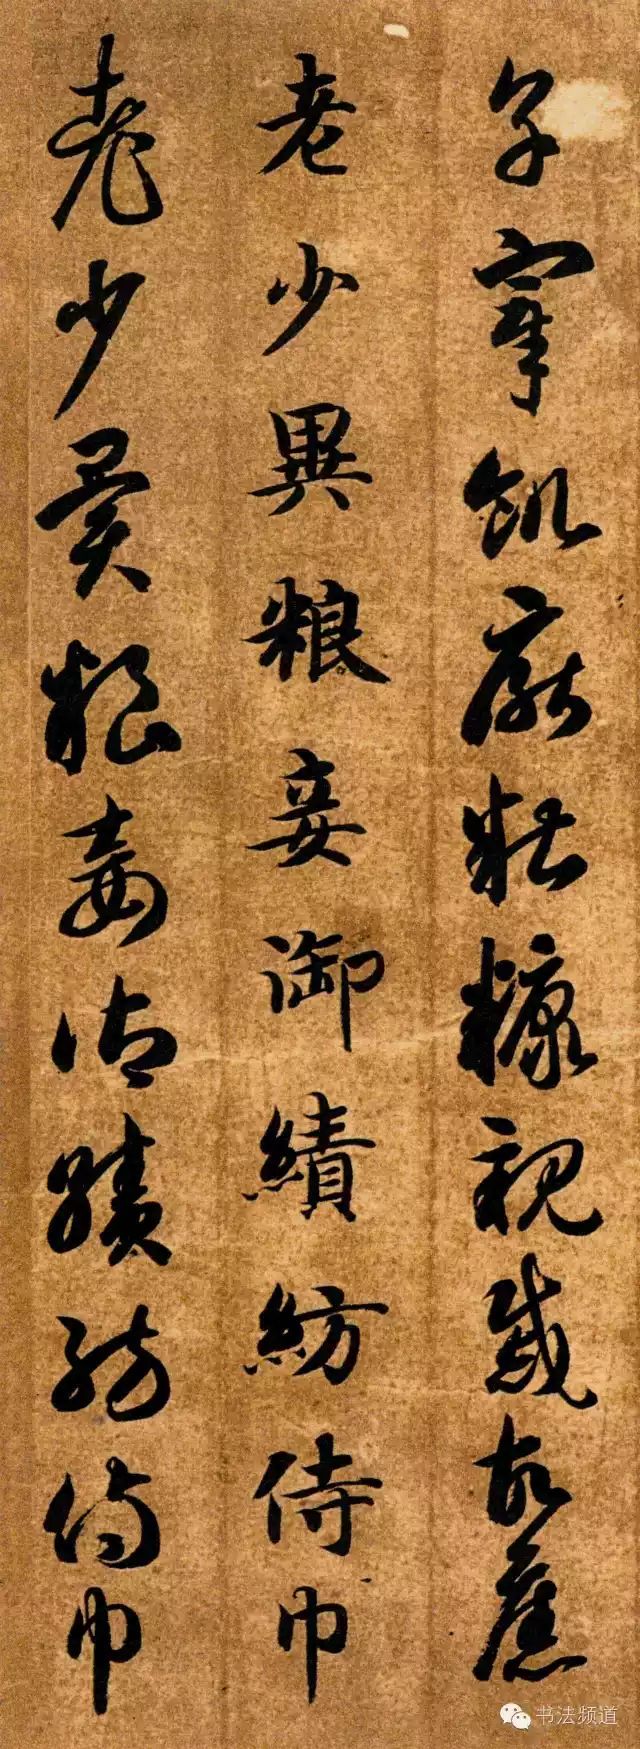 亨宰飢厭糟糠親戚故舊
老少異粮妾御績紡侍巾
老少異粮妾御績紡侍巾
书法频道